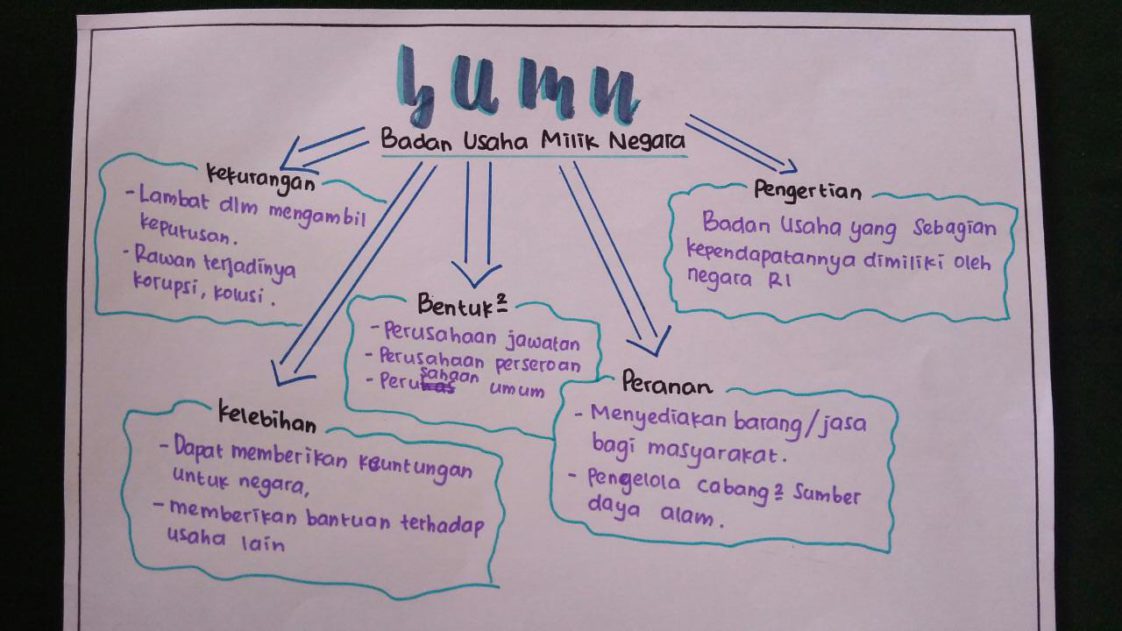 bumn
Badan Usaha Milik Negara
Kekurangan
- Lambat dlm mengambil
keputusan.
- Rawan terjadinya
korupsi, kolusi.
Pengertian
Badan Usaha yang Sebagian
kependapatannya dimiliki oleh
negara RI
Bentuk²
- Perusahaan jawatan
- Perusahaan perseroan
- Perusahaan umum
Peranan
- Menyediakan barang/jasa
bagi masyarakat.
- Pengelola cabang² Sumber
daya alam.
Kelebihan
- Dapat memberikan keuntungan
untuk negara,
- memberikan bantuan terhadap
usaha lain